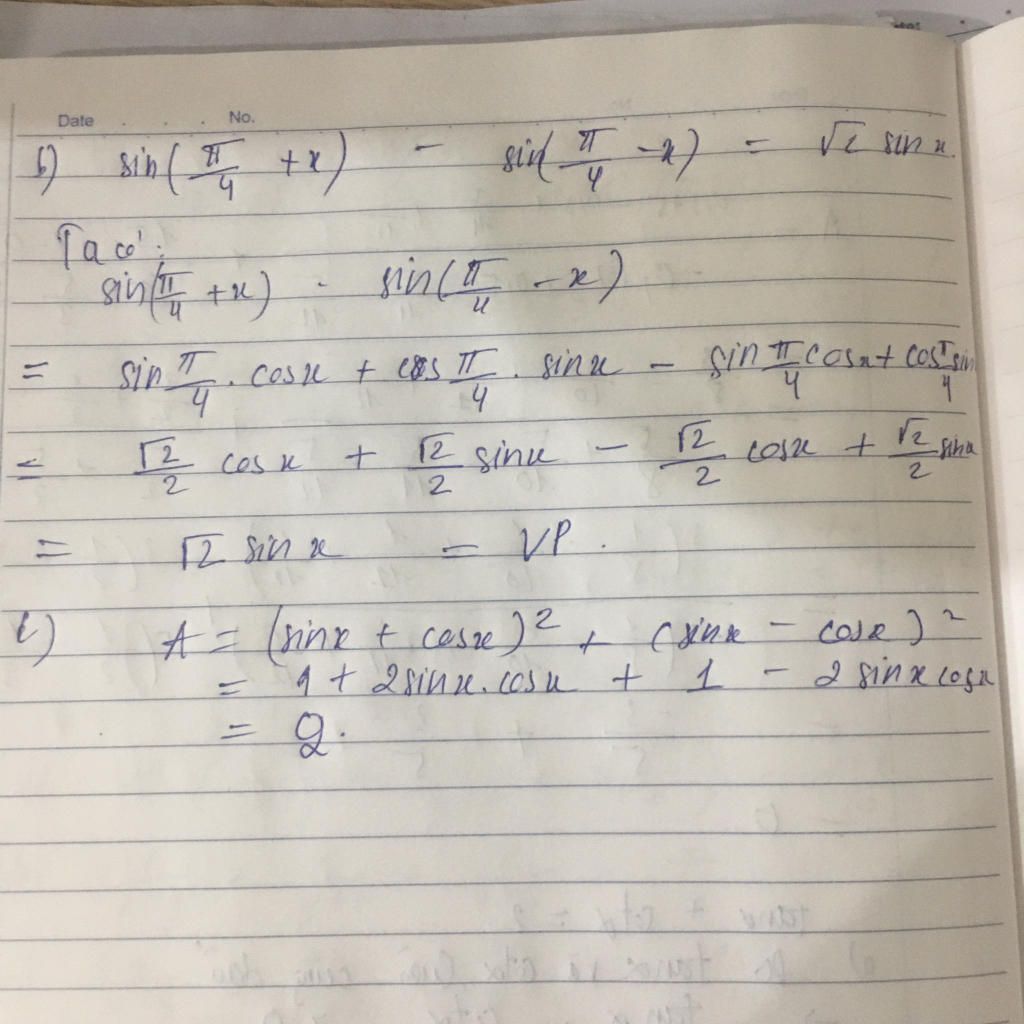 Date . . . No.
b) sin(π/4 + x) - sin(π/4 - x) = √2 sin x.
Ta có:
sin(π/4 + x) - sin(π/4 - x)
= sin π/4 . cosx + cos π/4 . sinx - sin π/4 cosx + cos π/4 sin
= √2/2 cosx + √2/2 sinx - √2/2 cosx + √2/2 sinx
= √2 sin x = VP.
c) A = (sinx + cosx)² + (sinx - cosx)²
= 1 + 2sinx.cosx + 1 - 2sinx cosx
= 2.